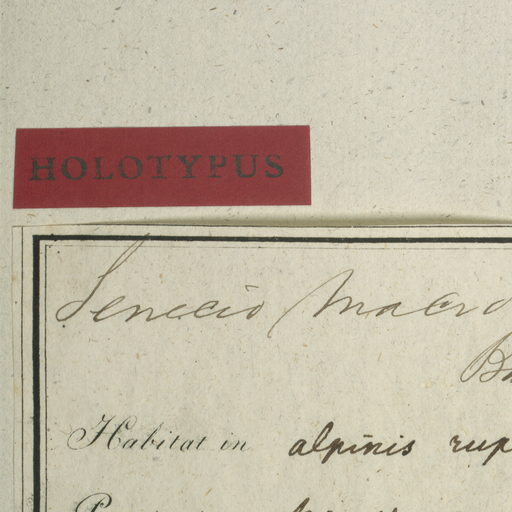 HOLOTYPUS
Senecio Macro
Ba
Habitat in alpinis rup